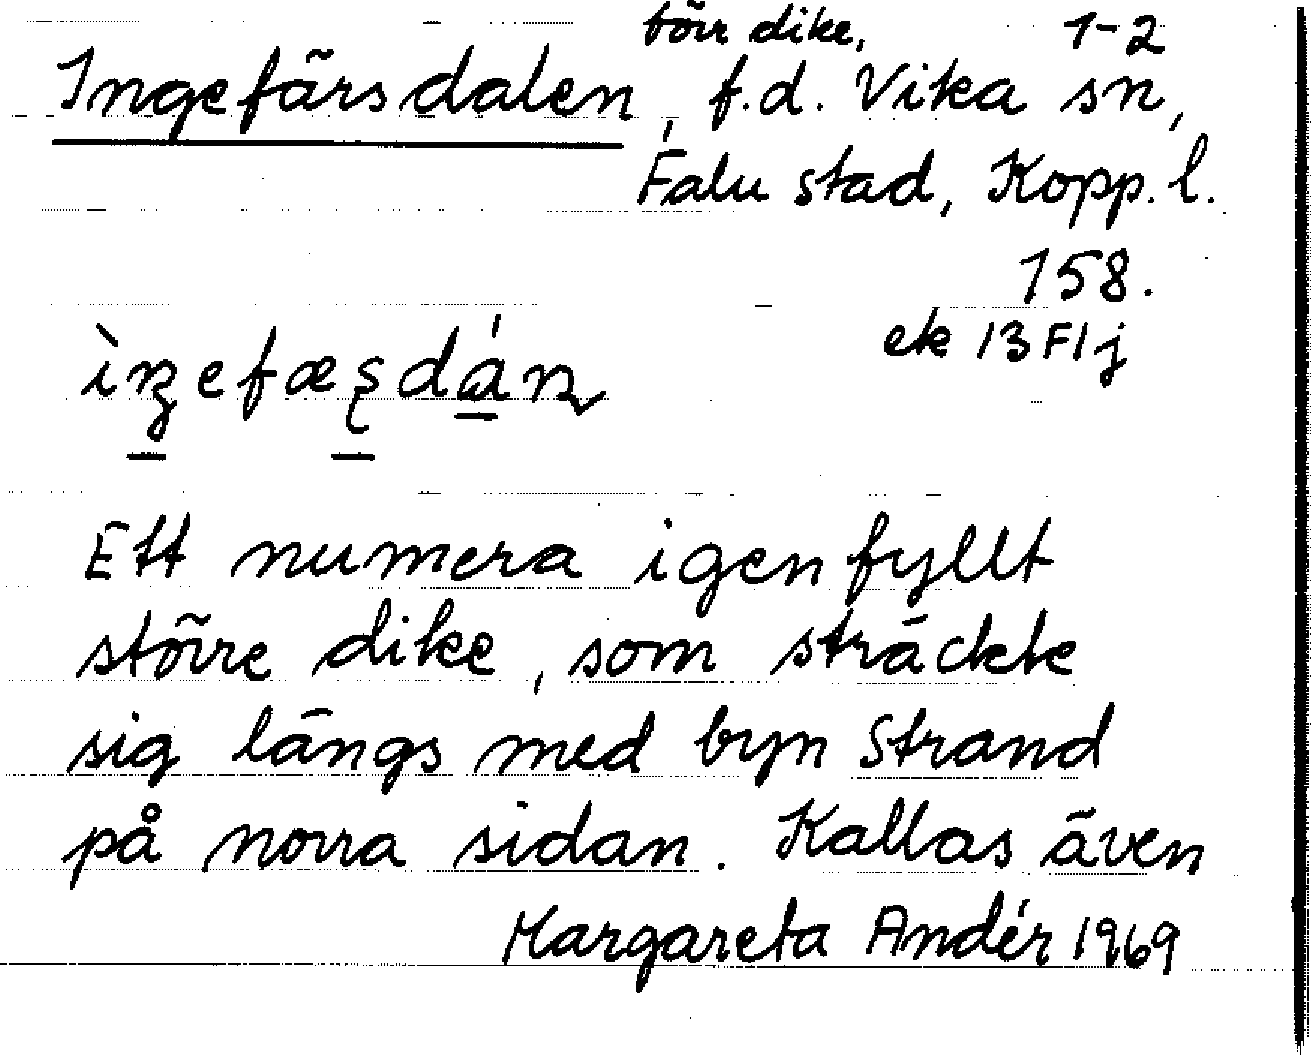 förr dike, 1-2
Ingefärsdalen, f.d. Vika sn,
Falu stad, Kopp. l.
158.
ek 13 F1 j
Ett numera igenfyllt
större dike, som sträckte
sig längs med byn Strand
på norra sidan. Kallas även
Margareta Andér 1969